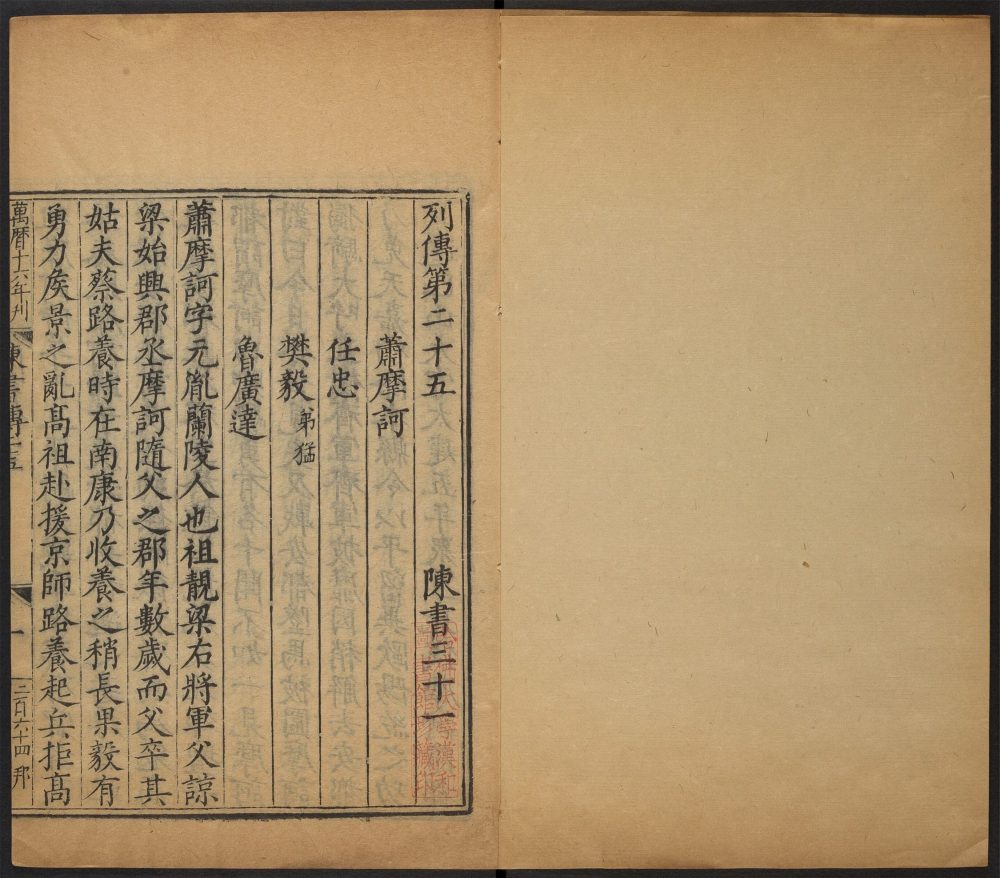 列傳第二十五　陳書三十一
蕭摩訶
任忠
樊毅 弟猛
魯廣達
蕭摩訶字元胤蘭陵人也祖靚梁右將軍父諒
梁始興郡丞摩訶隨父之郡年數歲而父卒其
姑夫蔡路養時在南康乃收養之稍長果毅有
勇力矦景之亂髙祖赴援京師路養起兵拒髙
萬曆十六年刋
陳書傳二五
一
三百六十四 邦